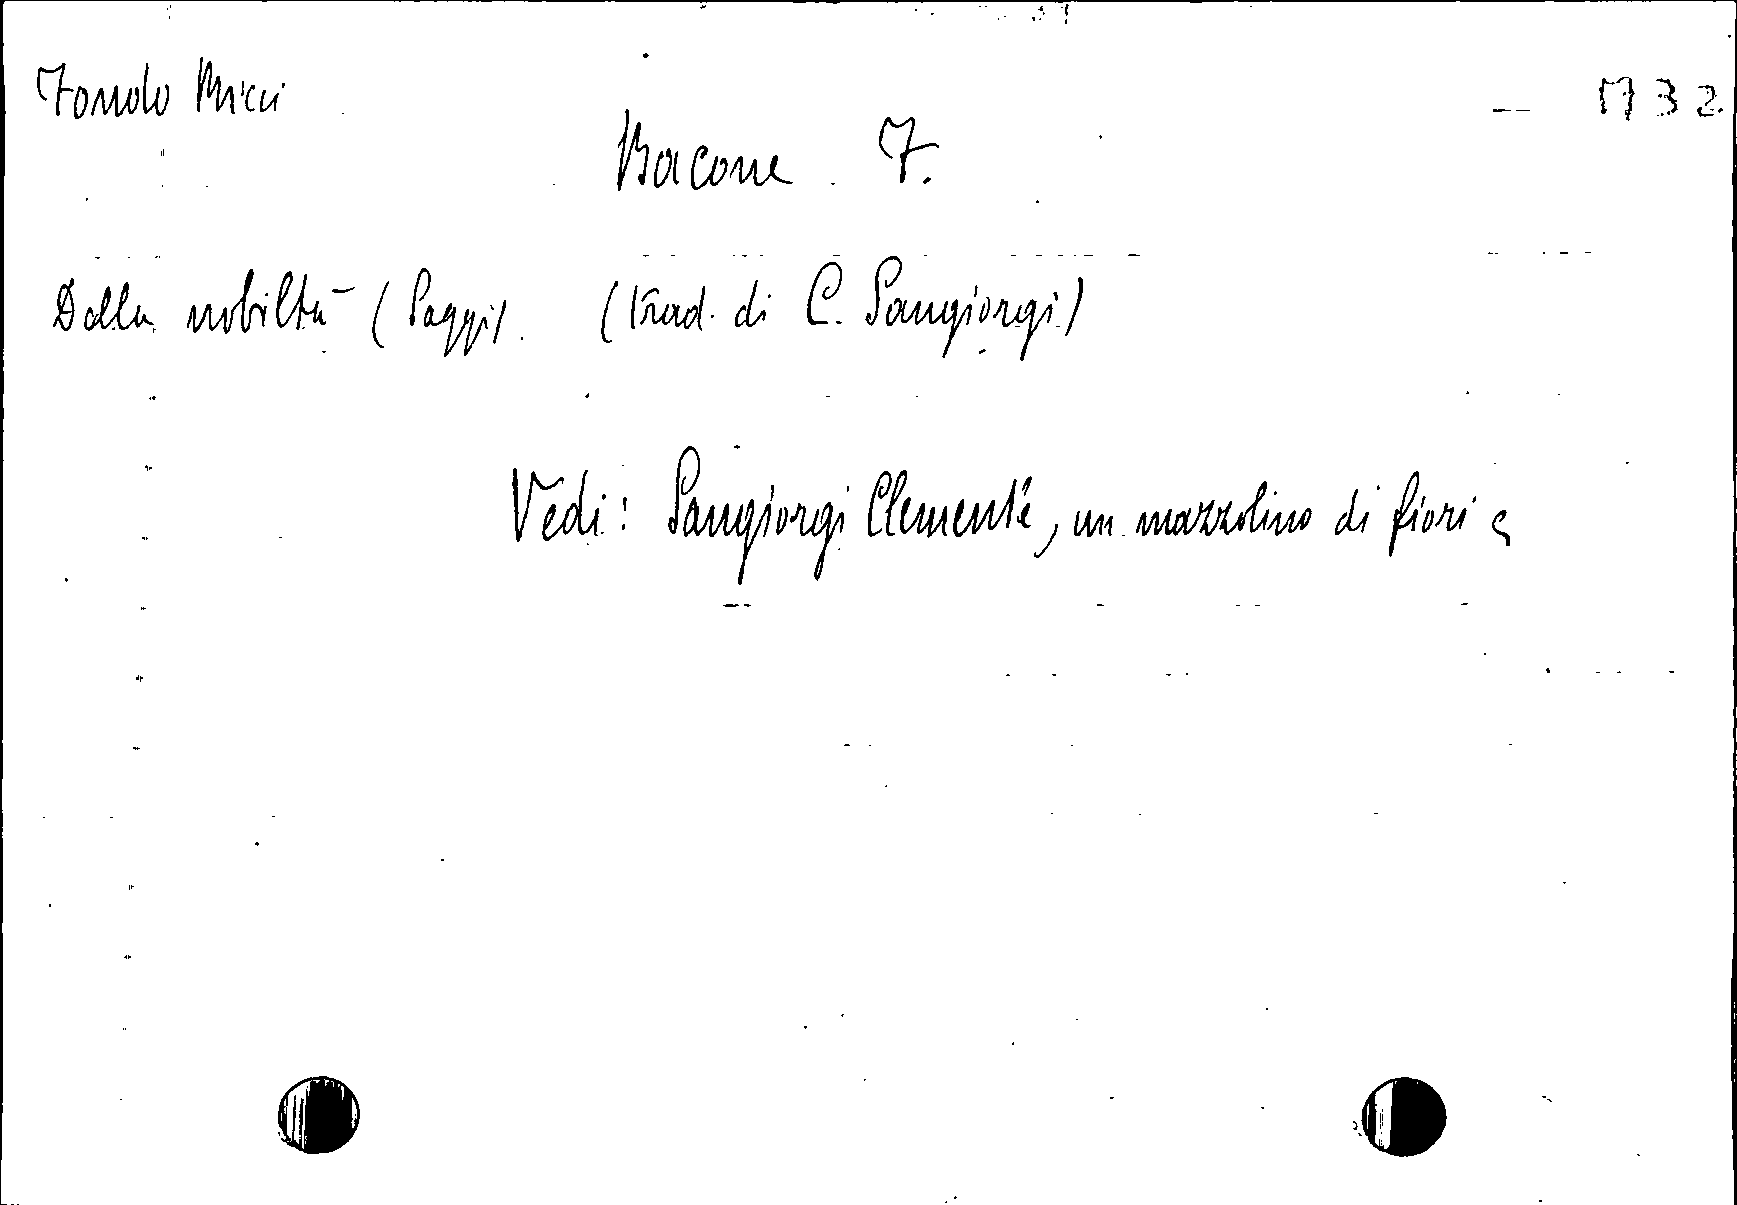 Fondo Ricci
1732
Bacone F.
Della nobiltà (Saggi). (Trad. di C. Sangiorgi)
Vedi: Sangiorgi Clemente, un mazzolino di fiori e